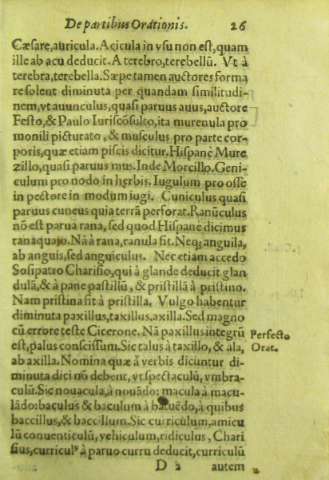 De partibus Orationis. 26
Cæsare, auricula. Acicula in vsu non est, quam
ille ab acu deducit. A terebro, terebellū. Vt à
terebra, terebella. Sæpe tamen auctores forma
resolent diminuta per quandam similitudi-
nem, vt auunculus, quasi paruus auus, auctore
Festo, & Paulo Iuriscōsulto, ita murenula pro
monili picturato, & musculus pro parte cor-
poris, quæ etiam piscis dicitur. Hispanè Mure
zillo, quasi paruus mus. Inde Morcillo. Geni-
culum pro nodo in herbis. Iugulum pro osse
in pectore in modum iugi. Cuniculus quasi
paruus cuneus quia terrā perforat. Ranūculus
nō est parua rana, sed quod Hispanè dicimus
ranaquajo. Nā à rana, ranula fit. Neq; anguila,
ab anguis, sed anguiculus. Nec etiam accedo
Sosipatro Charisio, qui à glande deducit glan
dulā, & à pane pastillū, & pristillā à pristino.
Nam pristina fit à pristilla. Vulgo habentur
diminuta paxillus, taxillus, axilla. Sed magno
cū errore teste Cicerone. Nā paxillus integrū
est, palus conscissum. Sic talus à taxillo, & ala,
ab axilla. Nomina quæ à verbis dicuntur di-
minuta dici nō debent, vt spectaculū, vmbra-
culū. Sic nouacula, à nouādo: macula à macu-
lādo: baculus & baculum à batuēdo, à quibus
baccillus, & baccillum. Sic curriculum, amicu
lū conuenticulū, vehiculum, ridiculus, Chari
sius, curriculū à paruo curru deducit, curriculū
Perfecto
Orat.
D 2 autem